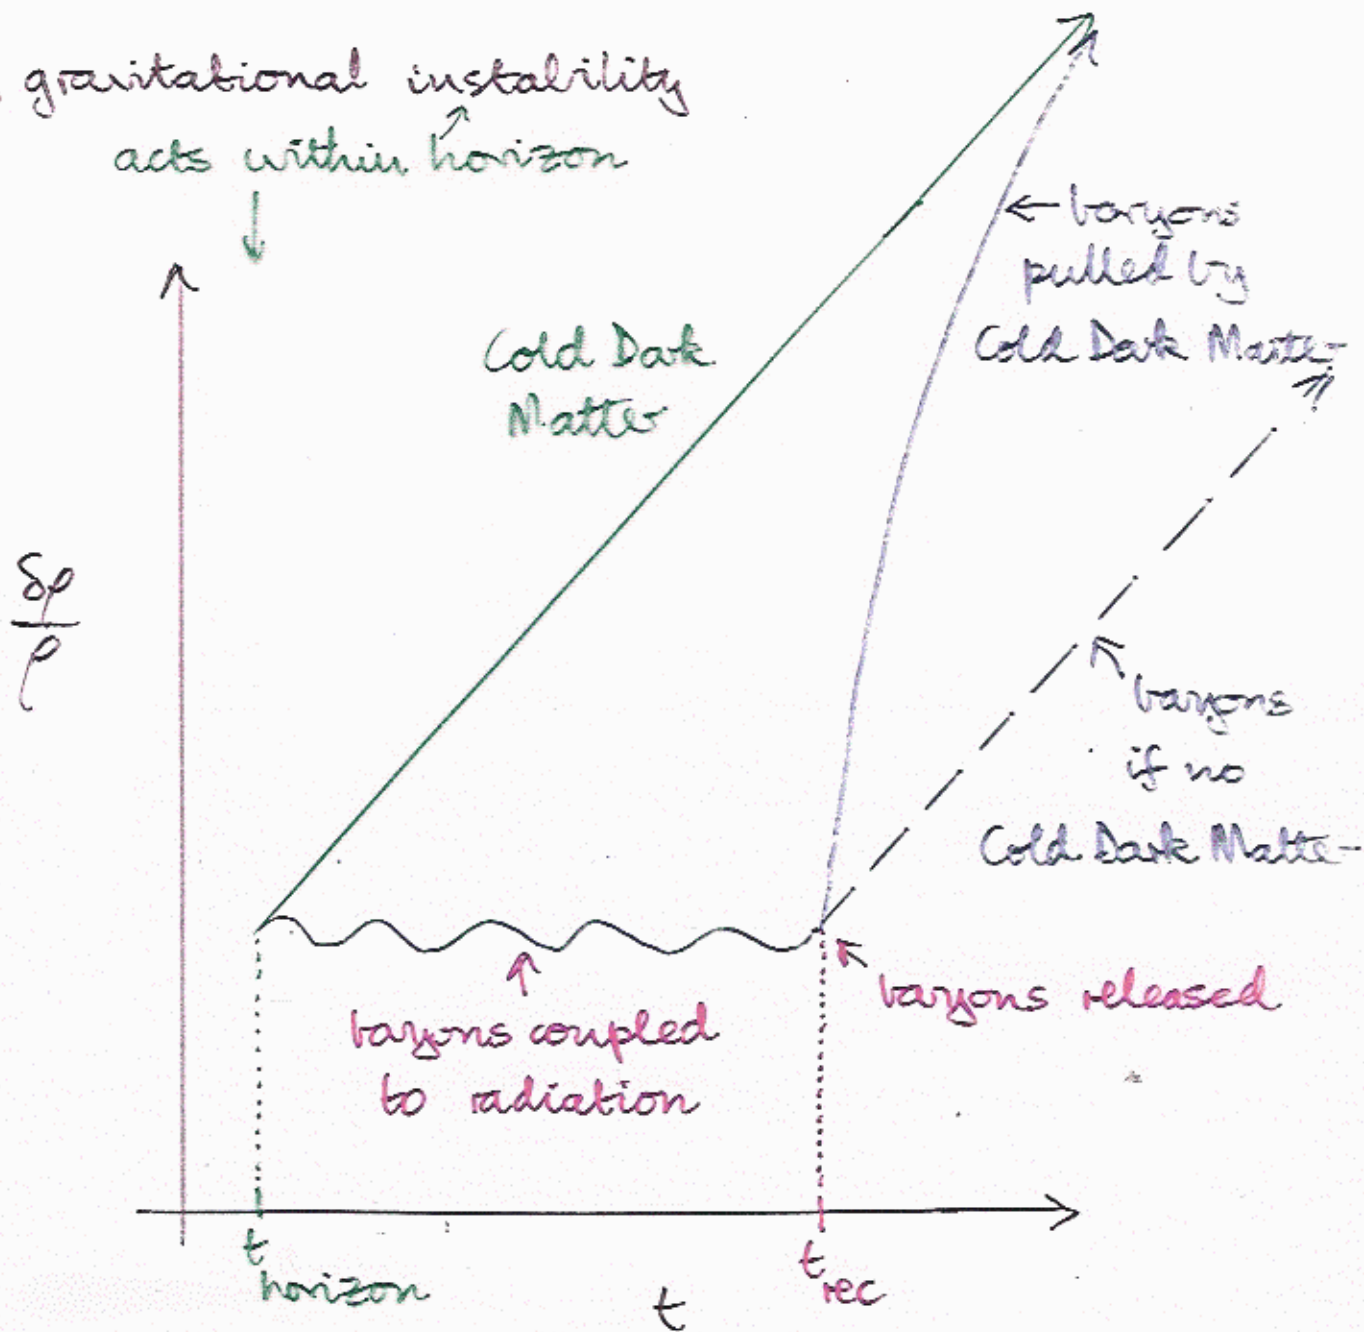 gravitational instability
acts within horizon
Cold Dark
Matter
← baryons
pulled by
Cold Dark Matter
δρ
ρ
baryons
if no
Cold Dark Matter
baryons released
baryons coupled
to radiation
t horizon
t
t rec